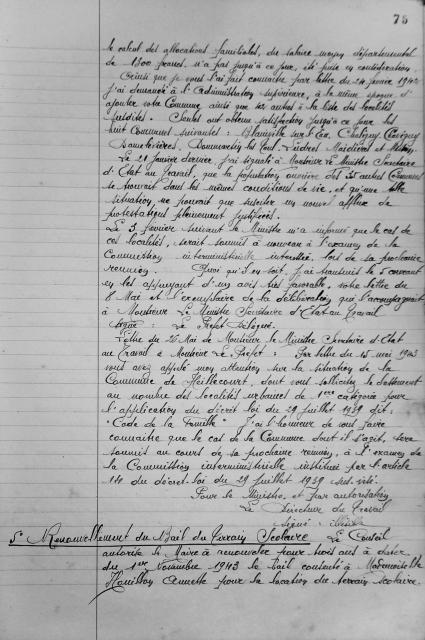 75
le calcul des allocations familiales, du salaire moyen départemental
de 1500 francs, n'a pas jusqu'à ce jour, été prise en considération.
Ainsi que je vous l'ai fait connaître par lettre du 24 janvier 1942
j'ai demandé à l'Administration supérieure, à la même époque d'
ajouter votre Commune ainsi que les autres à la liste des localités
susdites. Seules ont obtenu satisfaction jusqu'à ce jour les
huit Communes suivantes : Blainville sur l'Eau, Chaligny,
Dommartin les Toul, Ludres Maidières et
Le 21 janvier dernier, j'ai signalé à Monsieur Le Ministre Secrétaire
d'Etat au Travail, que la population ouvrière des 35 autres Communes
se trouvait dans les mêmes conditions de vie, et qu'une telle
situation, ne pouvait que susciter un nouvel afflux de
protestations pleinement justifiées.
Le 3 février suivant le Ministre m'a informé que le cas de
ces localités, serait soumis à nouveau à l'examen de la
Commission interministérielle lors de sa prochaine
réunion. Quoi qu'il en soit, j'ai transmis le 5 courant
en les appuyant d'un avis très favorable, votre lettre du
8 Mai et l'exemplaire de la délibération qui l'accompagnait
à Monsieur Le Ministre Secrétaire d'Etat au Travail
Signé : Le Préfet Délégué.
Lettre du 26 Mai de Monsieur le Ministre Secrétaire d'Etat
au Travail à Monsieur Le Préfet : Par lettre du 15 mai 1943
vous avez appelé mon attention sur la situation de la
Commune de Heillecourt, dont vous sollicitez le classement
au nombre des localités urbaines de 1ère catégorie pour
l'application du décret loi du 29 juillet 1939 dit :
"Code de la Famille" J'ai l'honneur de vous faire
connaître que le cas de la Commune dont il s'agit, sera
soumis au cours de sa prochaine réunion, à l'examen de
la Commission interministérielle instituée par l'article
du décret-loi du 29 juillet 1939 sus visé.
Pour le Ministre et par autorisation
Le Directeur du Travail
Signé :
5° Renouvellement du Bail du Terrain Scolaire Le Conseil
autorise Mr le Maire à renouveler pour trois ans à dater
du 1er Novembre 1943 le bail consenti à Mademoiselle
pour la location du terrain scolaire.